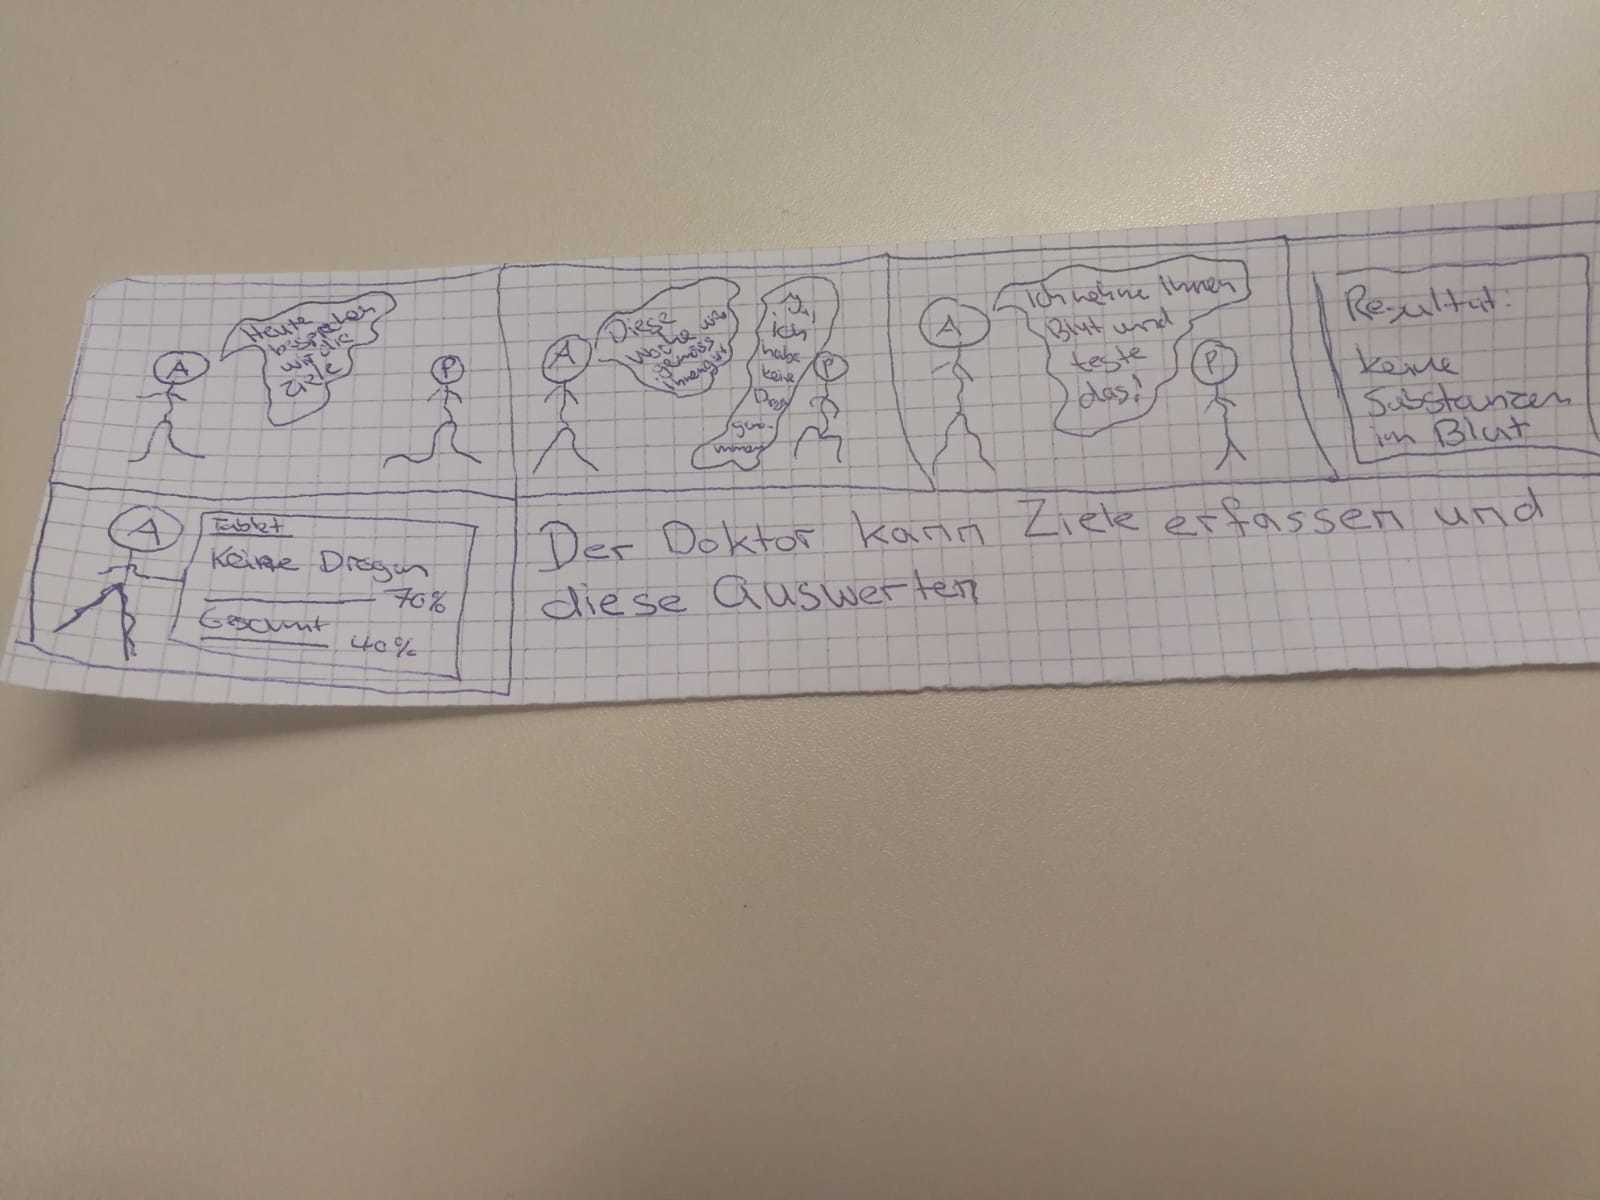 A
Heute
besprechen
wir die
Ziele
P
A
Diese
Woche
gemäss
Ja,
ich
habe
keine
P
A
Ich nehme Ihnen
Blut und
teste
das!
P
Resultat:
Keine
Substanzen
im Blut
A
Tablet
Keine Drogen
70%
Gesamt
40%
Der Doktor kann Ziele erfassen und
diese Auswerten